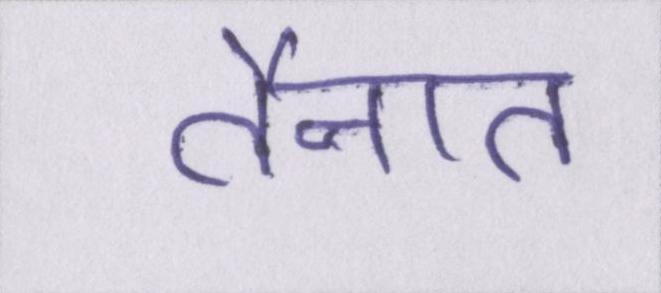 तैनात